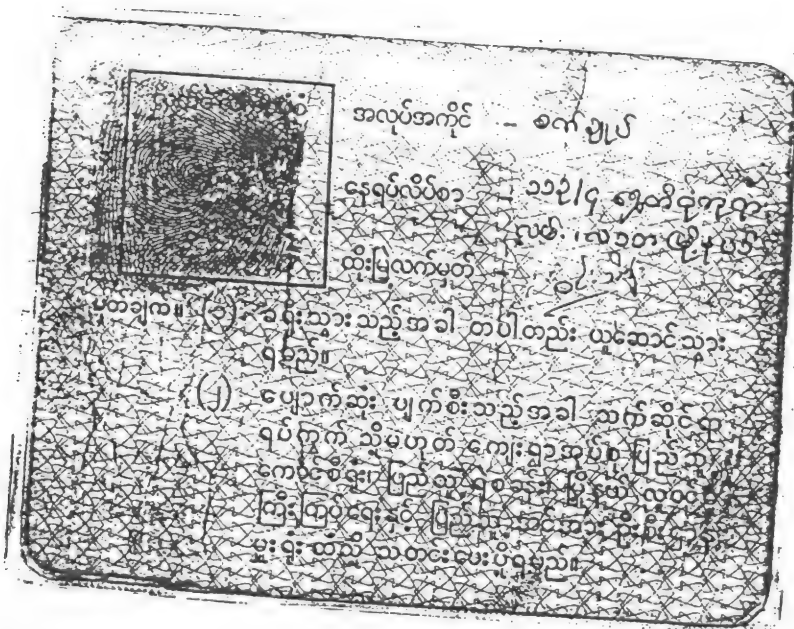 အလုပ်အကိုင် - စက်ချုပ်
နေရပ်လိပ်စာ - ၁၁၃/၄
လမ်း၊ လသာ မြို့နယ်
ထိုးမြဲလက်မှတ် -
မှတ်ချက်။ (၁) ခရီးသွားသည့်အခါ တပါတည်း ယူဆောင်သွား
ရမည်။
(၂) ပျောက်ဆုံး ပျက်စီးသည့်အခါ သက်ဆိုင်ရာ
ရပ်ကွက် သို့မဟုတ် ကျေးရွာအုပ်စု ပြည်သူ့
ကောင်စီရုံး၊ ပြည်သူ့
ကြီးကြပ်ရေးနှင့် ပြည်သူ့အင်အား
မှူးရုံး ထံသို့ သတင်းပေးပို့ရမည်။